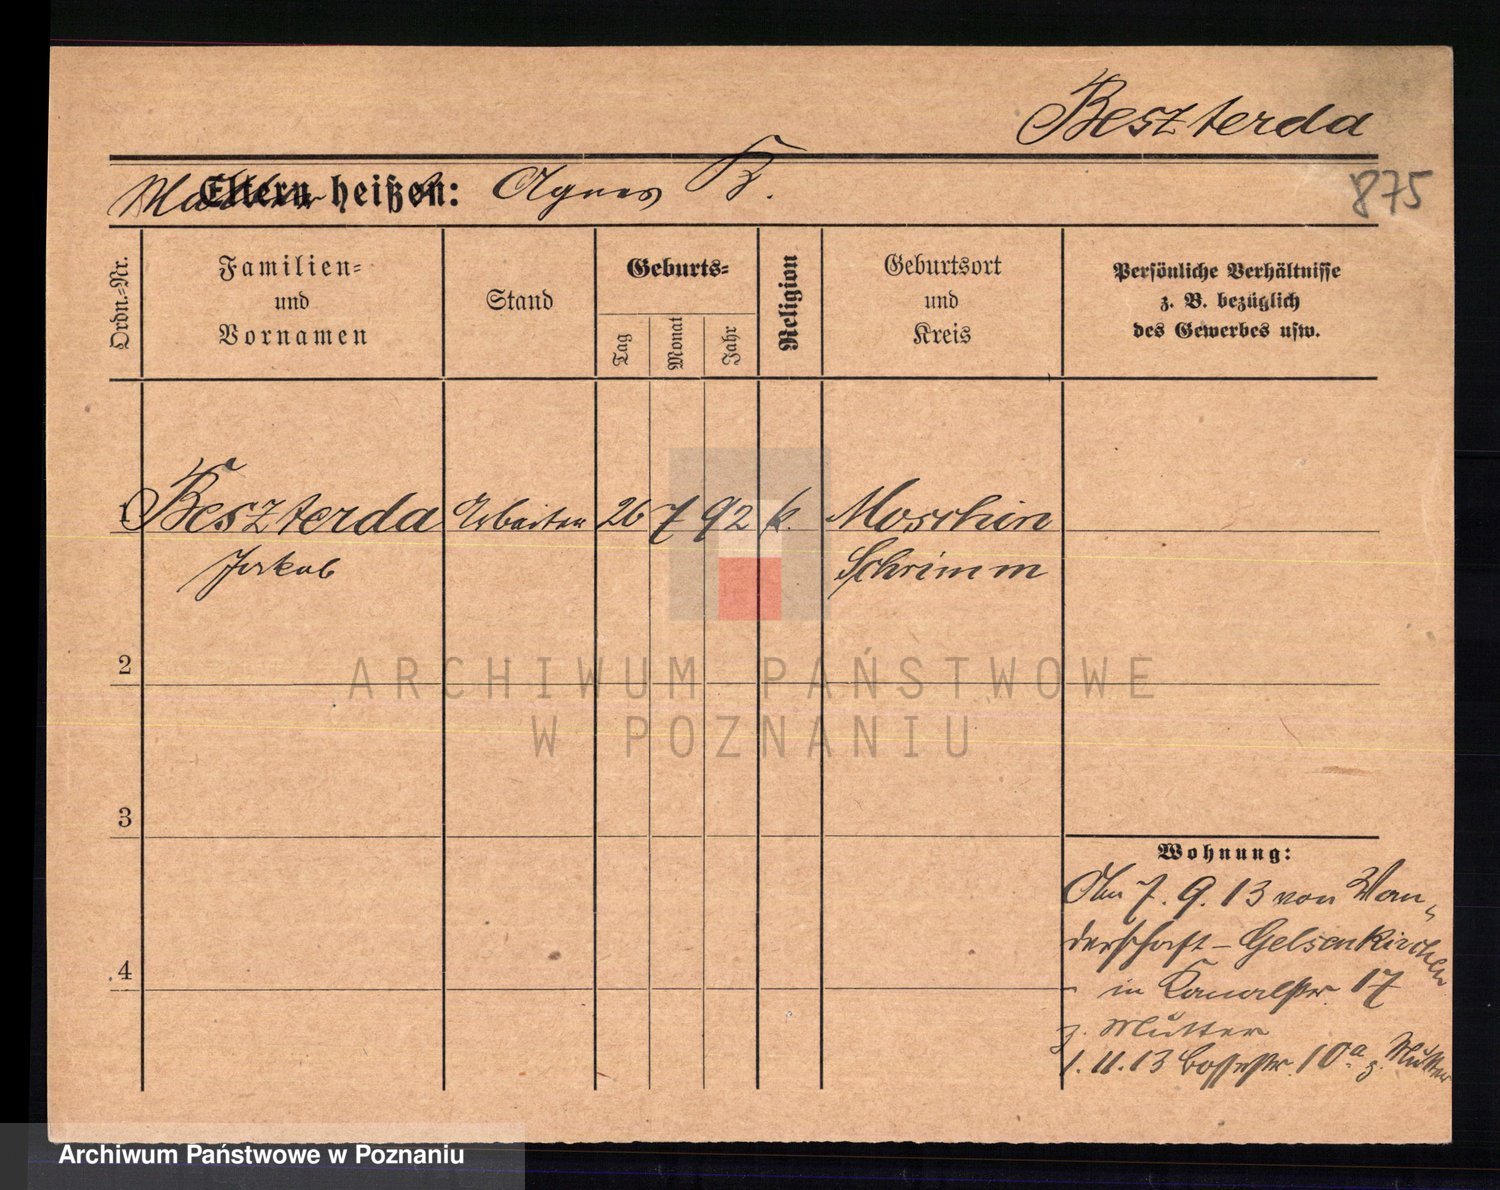 Beszterda
Mutter Eltern heißen: Agnes B.
875
Ordn.-Nr.
Familien-
und
Vornamen
Stand
Geburts-
Tag
Monat
Jahr
Religion
Geburtsort
und
Kreis
Persönliche Verhältnisse
z. B. bezüglich
des Gewerbes usw.
1 Beszterda Arbeiter 26 7 92 k. Moschin
Jakob Schrimm
2
3
4
Wohnung:
7. 9. 13 von Wan-
derschaft - Gelsenkirchen
in Kanalstr 17
z. Mutter
1. 11. 13 10a z. Mutter
ARCHIWUM PAŃSTWOWE
W POZNANIU
Archiwum Państwowe w Poznaniu